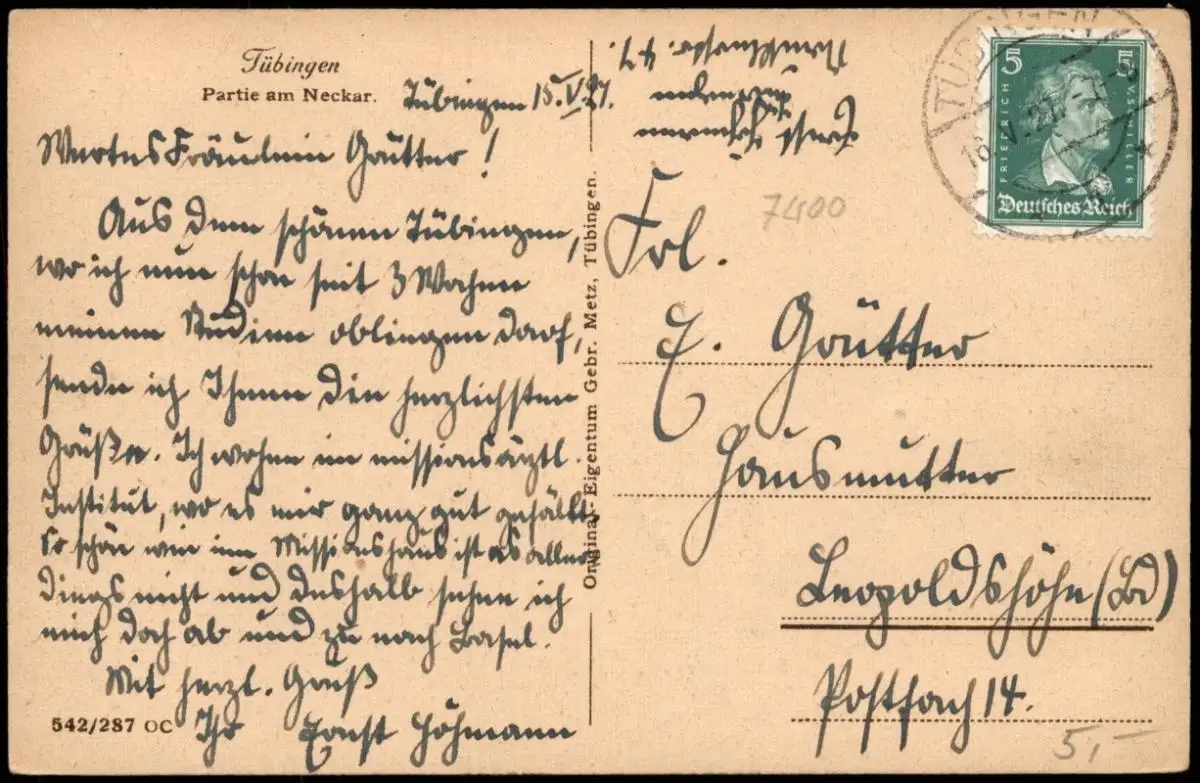 Tübingen
Partie am Neckar.
Tübingen 15.V.27.
Wertes Fräulein Grütter!
Aus dem schönen Tübingen,
wo ich nun schon seit 3 Wochen
meinen Studien obliegen darf,
sende ich Ihnen die herzlichsten
Grüße. Ich wohne im missionsärztl.
Institut, wo es mir ganz gut gefällt,
so schön wie im Missionshaus ist es aller-
dings nicht und deshalb sehne ich
mich doch ab und zu nach Basel.
Mit herzl. Gruß
Ihr Ernst Höhmann
542/287 OC
Original-Eigentum Gebr. Metz, Tübingen.
Ernst Höhmann
Tübingen
7400
TÜBINGEN
16.V.27. 7-8
5 5
FRIEDRICH V. SCHILLER
Deutsches Reich
Frl.
E. Grütter
Hausmutter
Leopoldshöhe (Bd)
Postfach 14.
5,-